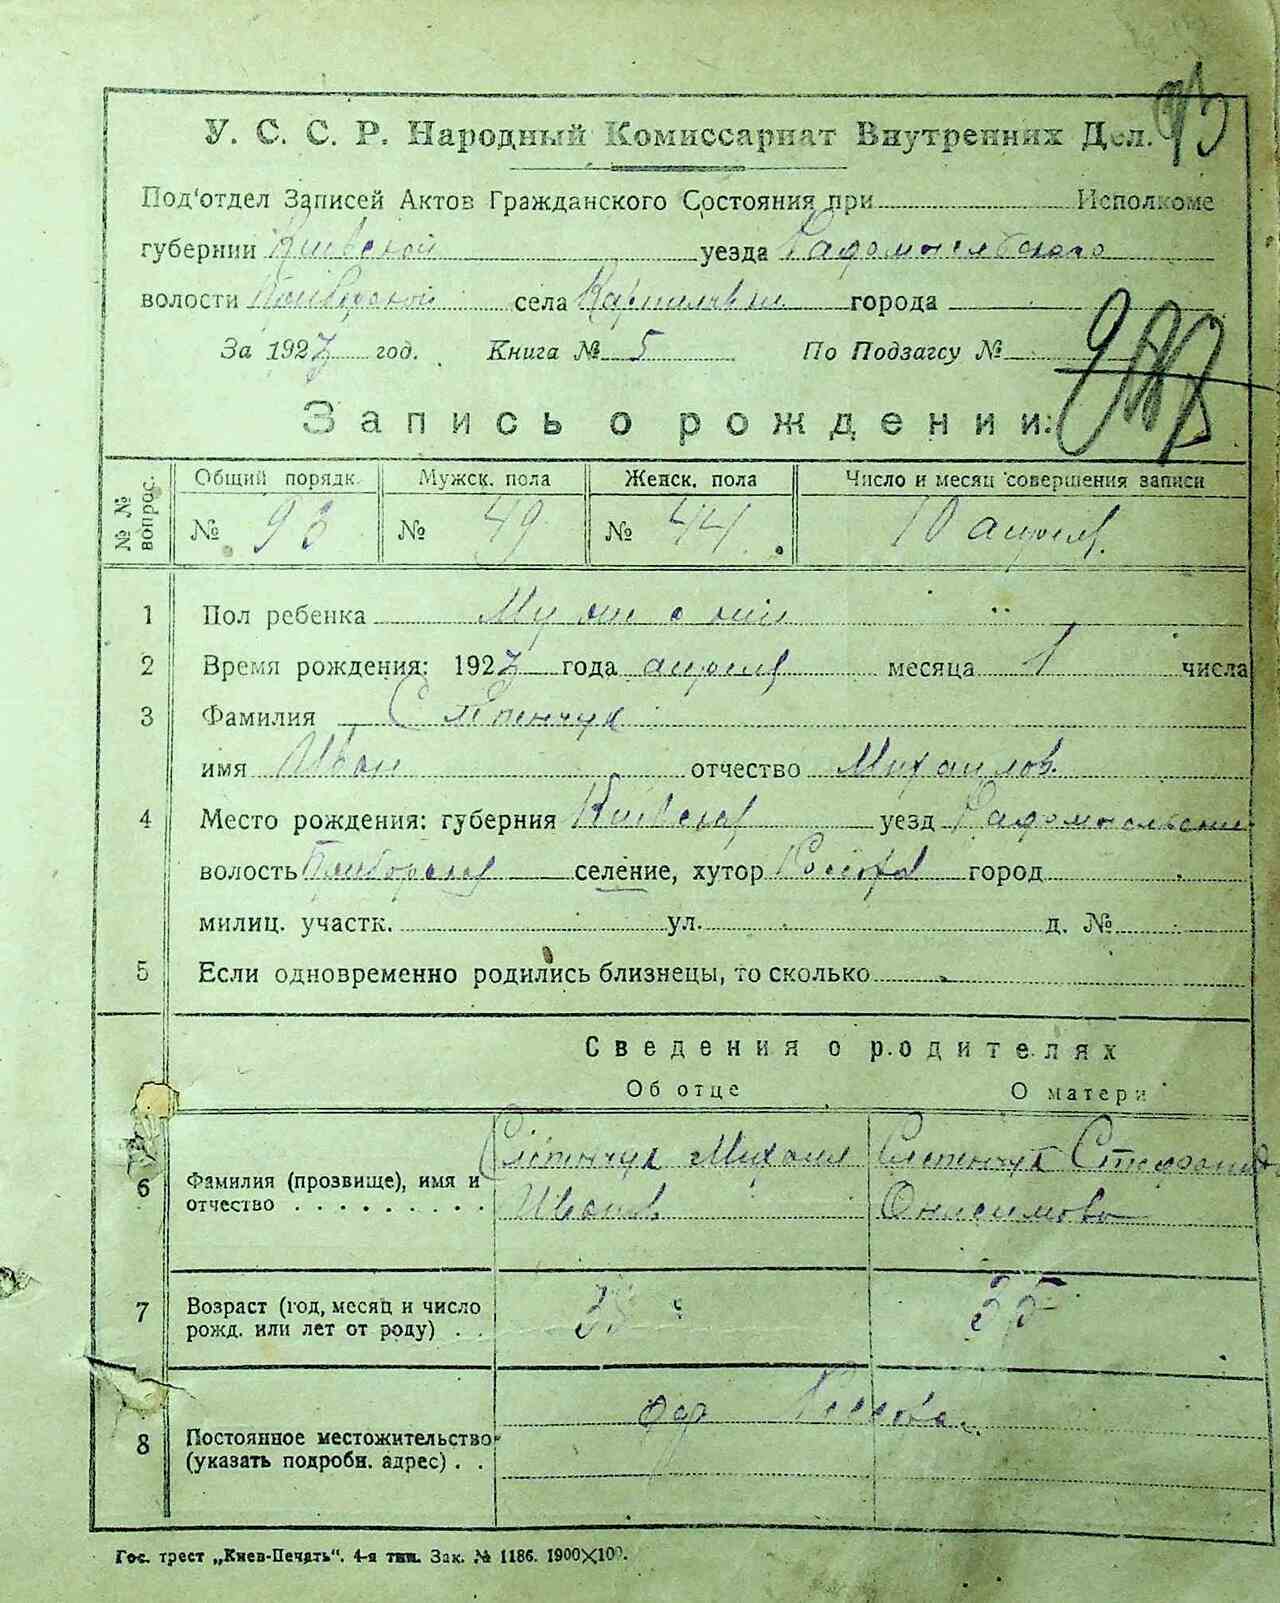 93
У. С. С. Р. Народный Комиссариат Внутренних Дел.
Под'отдел Записей Актов Гражданского Состояния при Исполкоме
губернии Киевской уезда Радомысльского
волости села города
За 1923 год. Книга № 5 По Подзагсу №
Запись о рождении:
№ № вопрос. Общий порядк. Мужск. пола Женск. пола Число и месяц совершения записи
№ 93 № 49 № 44 10 апреля
1 Пол ребенка Мужской
2 Время рождения: 1923 года апреля месяца 1 числа
3 Фамилия
имя Иван отчество Михаилов.
4 Место рождения: губерния Киевская уезд Радомысльский
волость селение, хутор город
милиц. участк. ул. д. №
5 Если одновременно родились близнецы, то сколько
Сведения о родителях
Об отце О матери
6 Фамилия (прозвище), имя и отчество Михаил Иванов Онисимова
7 Возраст (год, месяц и число рожд. или лет от роду) 35
8 Постоянное местожительство (указать подробн. адрес)
Гос. трест „Киев-Печать“. 4-я тип. Зак. № 1186. 1900×100.